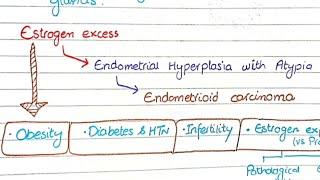 glands.
Estrogen excess
Endometrial Hyperplasia with Atypia
Endometrioid carcinoma
• Obesity • Diabetes & HTN • Infertility • Estrogen ex
(vs Pr
Pathological